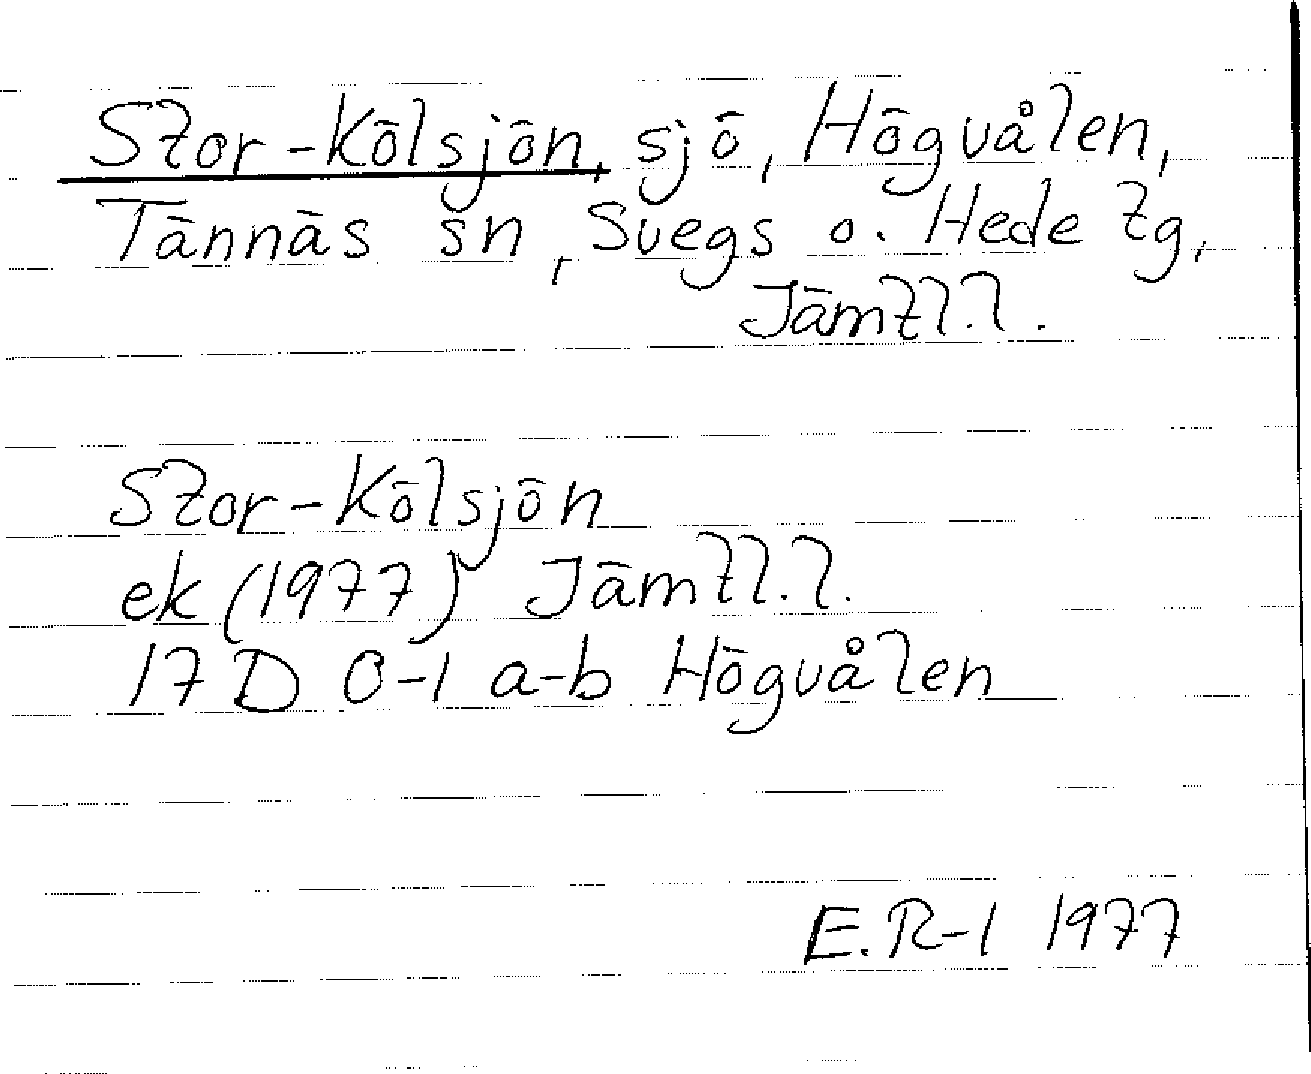 Stor-Kölsjön, sjö, Högvålen,
Tännäs sn, Svegs o. Hede tg,
Jämtl.l.
Stor-Kölsjön
ek (1977) Jämtl.l.
17 D 0-1 a-b Högvålen
E.R-l 1977